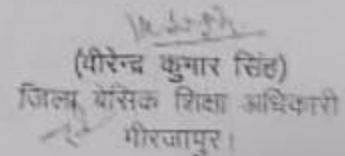 (वीरेन्द्र कुमार सिंह)
जिला बेसिक शिक्षा अधिकारी
मीरजापुर।